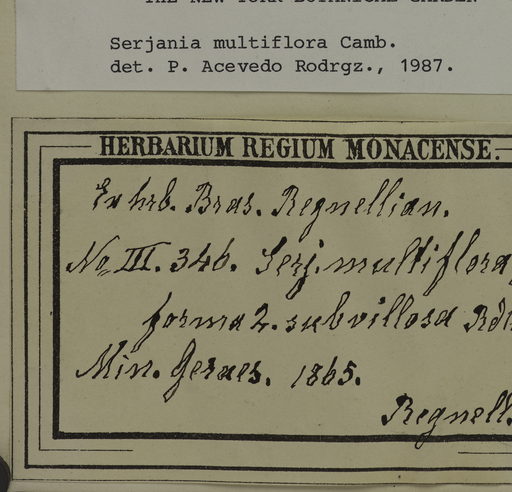 THE NEW YORK BOTANICAL GARDEN
Serjania multiflora Camb.
det. P. Acevedo Rodrgz., 1987.
HERBARIUM REGIUM MONACENSE.
Ex hrb. Bras. Regnellian.
No. III. 346. Serj. multiflora
forma 2. subvillosa
Min. Geraes. 1865.
Regnell.